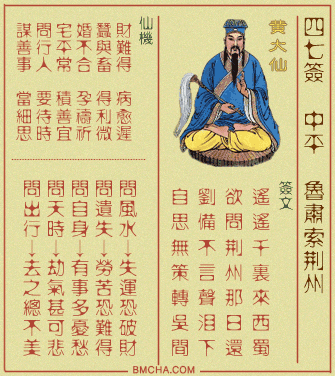 四七簽 中平 魯肅索荆州
黃大仙
簽文
遙遙千裏來西蜀
欲問荆州那日還
劉備不言聲淚下
自思無策轉吳間
仙機
財難得 病愈遲
蠶與畜 得利微
婚不合 孕禱祈
宅平常 積善宜
問行人 要待時
謀善事 當細思
問風水→失運恐破財
問遺失→勞苦恐難得
問自身→有事多憂愁
問天時→劫氣甚可悲
問出行→去之總不美
BMCHA.COM